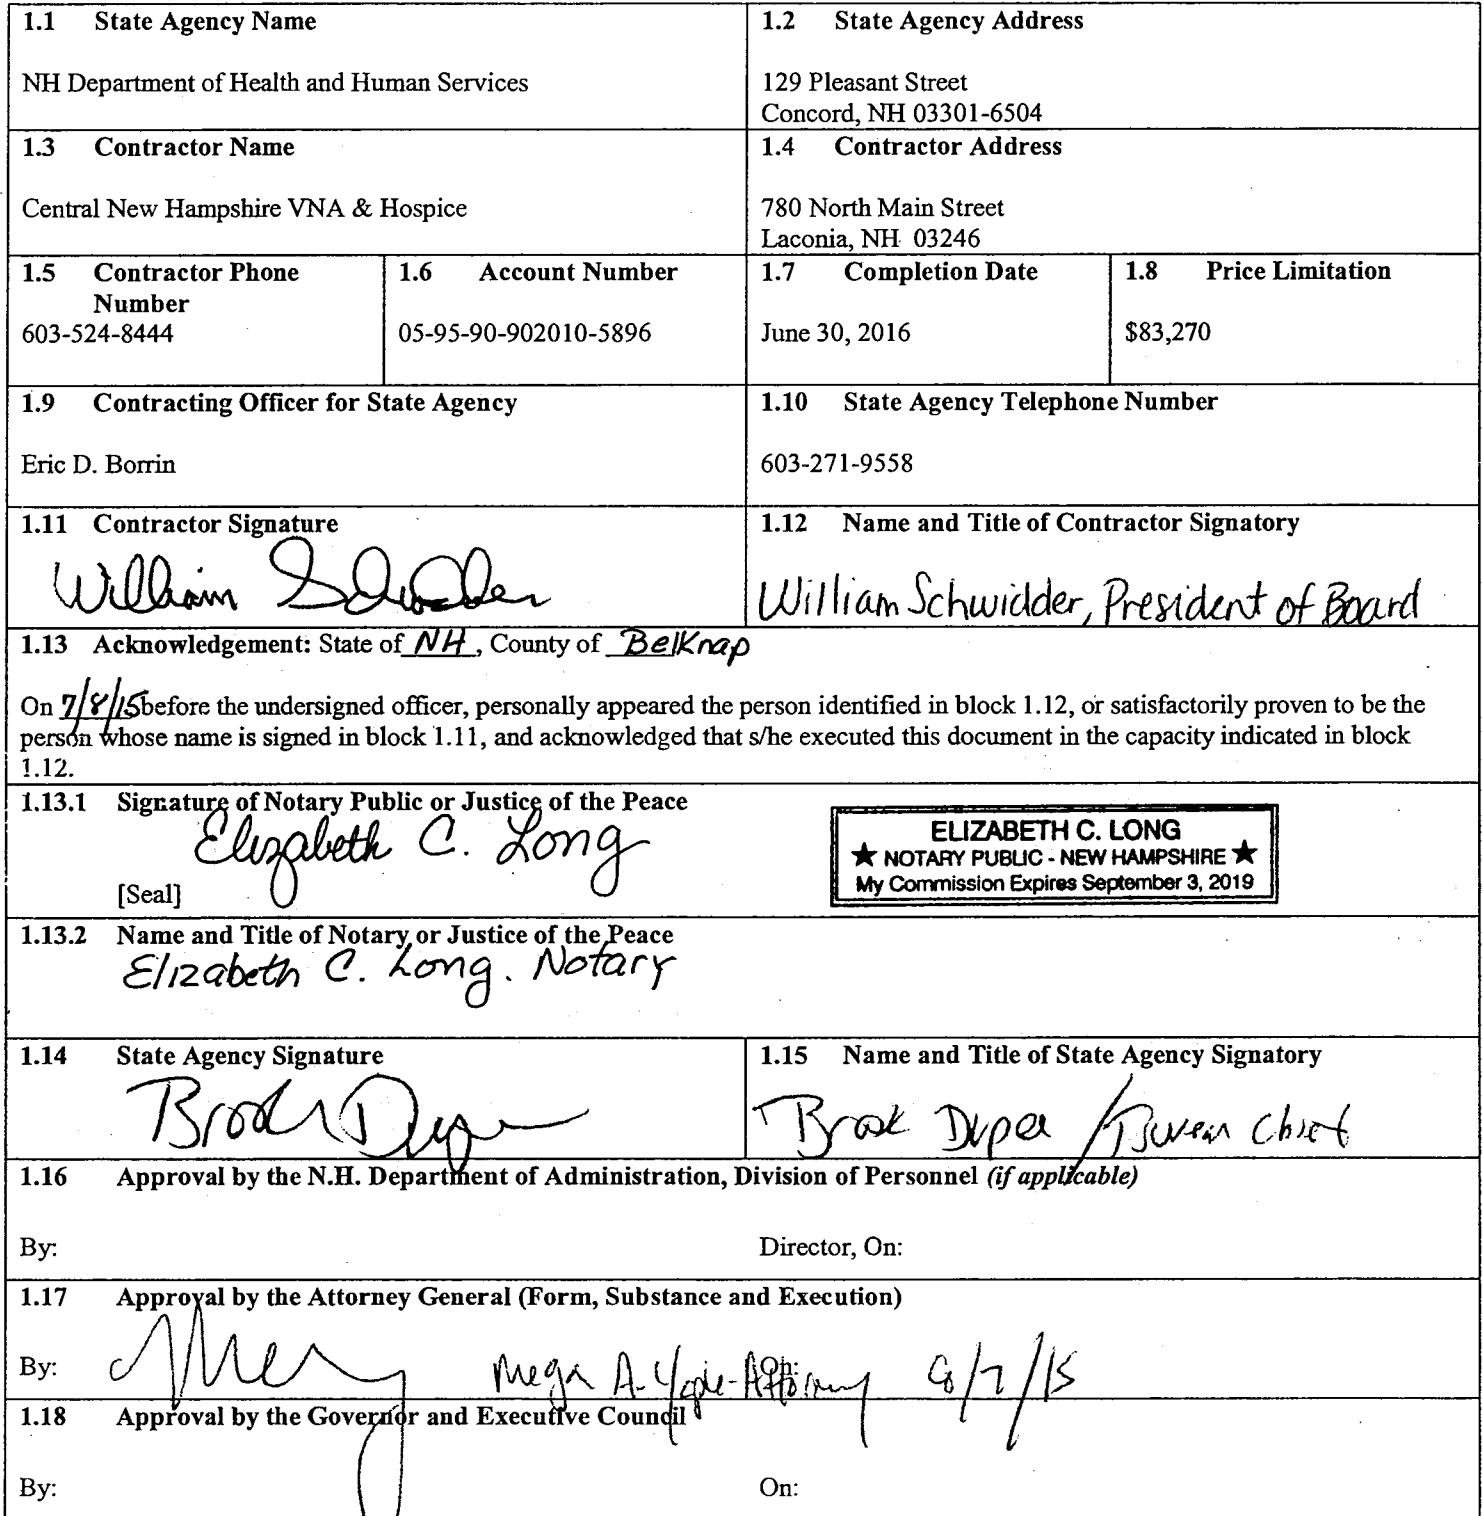 1.1 State Agency Name
NH Department of Health and Human Services
1.2 State Agency Address
129 Pleasant Street
Concord, NH 03301-6504
1.3 Contractor Name
Central New Hampshire VNA & Hospice
1.4 Contractor Address
780 North Main Street
Laconia, NH 03246
1.5 Contractor Phone
Number
603-524-8444
1.6 Account Number
05-95-90-902010-5896
1.7 Completion Date
June 30, 2016
1.8 Price Limitation
$83,270
1.9 Contracting Officer for State Agency
Eric D. Borrin
1.10 State Agency Telephone Number
603-271-9558
1.11 Contractor Signature
William Schwidder
1.12 Name and Title of Contractor Signatory
William Schwidder, President of Board
1.13 Acknowledgement: State of NH, County of Belknap
On 7/8/15 before the undersigned officer, personally appeared the person identified in block 1.12, or satisfactorily proven to be the
person whose name is signed in block 1.11, and acknowledged that s/he executed this document in the capacity indicated in block
1.12.
1.13.1 Signature of Notary Public or Justice of the Peace
Elizabeth C. Long
[Seal]
ELIZABETH C. LONG
★ NOTARY PUBLIC - NEW HAMPSHIRE ★
My Commission Expires September 3, 2019
1.13.2 Name and Title of Notary or Justice of the Peace
Elizabeth C. Long. Notary
1.14 State Agency Signature
1.15 Name and Title of State Agency Signatory
Brook Dupee / Bureau Chief
1.16 Approval by the N.H. Department of Administration, Division of Personnel (if applicable)
By:
Director, On:
1.17 Approval by the Attorney General (Form, Substance and Execution)
By: Megan A. Yaple - Attorney On: 8/7/15
1.18 Approval by the Governor and Executive Council
By:
On: